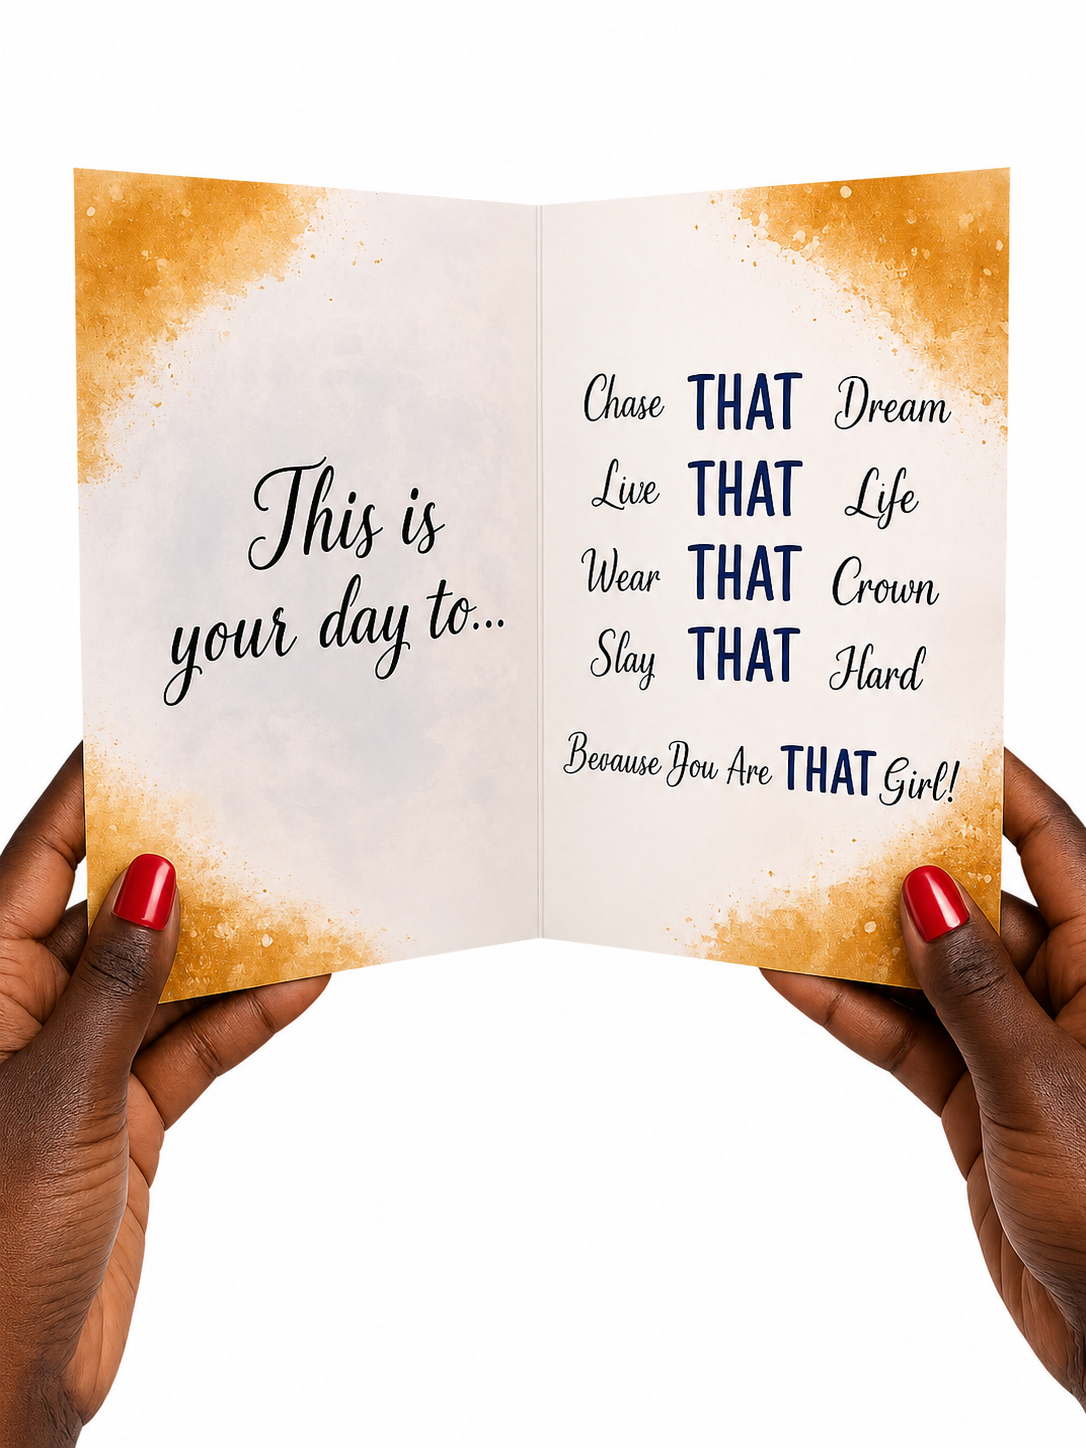 This is
your day to...
Chase THAT Dream
Live THAT Life
Wear THAT Crown
Slay THAT Hard
Because You Are THAT Girl!